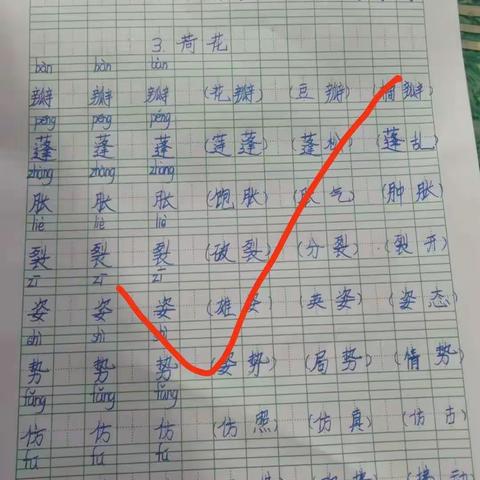 3. 荷花
bàn bàn bàn
瓣 瓣 瓣 (花瓣) (豆瓣) (瓣)
péng péng péng
蓬 蓬 蓬 (莲蓬) (蓬松) (蓬乱)
zhàng zhàng zhàng
胀 胀 胀 (饱胀) (胀气) (肿胀)
liè liè liè
裂 裂 裂 (破裂) (分裂) (裂开)
zī zī zī
姿 姿 姿 (雄姿) (英姿) (姿态)
shì shì
势 势 势 (姿势) (局势) (情势)
fǎng fǎng fǎng
仿 仿 仿 (仿照) (仿真) (仿古)
fú fú fú